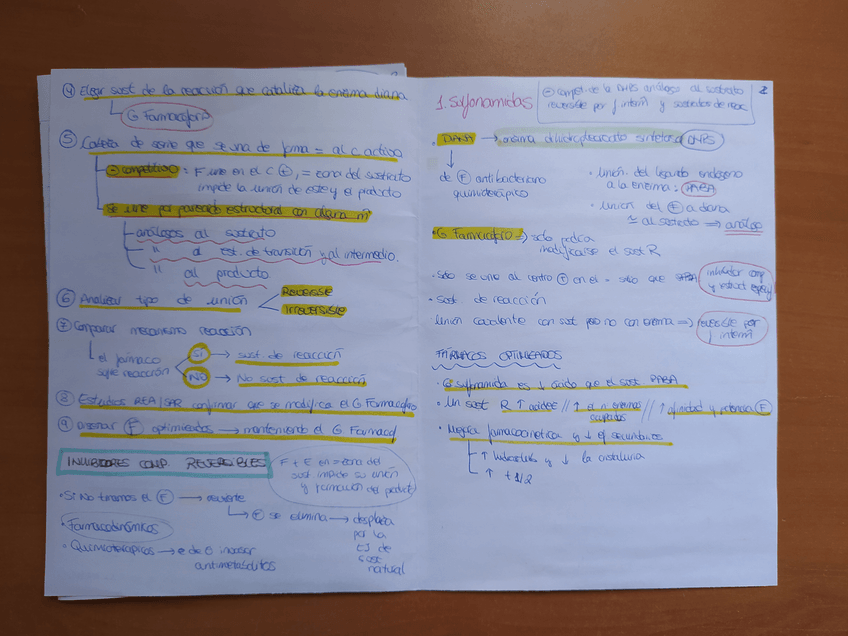 ④ Elegir sust de la reacción que cataliza la enzima diana
G Farmacóforo
⑤ de que se una de forma = al c activo
⊖ competitivo : F une en el c Ⓔ, = zona del sustrato
impide la unión de este y el producto
Se une por parecido estructural con alguna m
análogos al sustrato
" al est. de transición y al intermedio.
" al producto
⑥ Analizar tipo de unión
Reversible
Irreversible
⑦ Comparar mecanismo reacción
el fármaco
sufre reacción
Sí → sust. de reacción
No → No sust de reacción
⑧ Estudios REA/SAR confirmar que se modifica el G Farmacóforo
⑨ diseñar Ⓕ optimizados → manteniendo el G Farmacóf
INHIBIDORES COMP. REVERSIBLES
F + E en = zona del
sust impide su unión
y formación del producto
· Si No tomamos el Ⓕ → revierte
→ Ⓕ se elimina → desplaza
por la
[] de
sust
natural
· Farmacodinámicos
· Quimioterápicos → e de G
antimetabolitos
2
1. Sulfonamidas
⊖ compet. de la DHPS análogo al sustrato
reversible por f interm y sustratos de reac.
· DIANA → enzima dihidropteroato sintetasa DHPS
de Ⓕ antibacteriano
quimioterápico
· unión del ligando endógeno
a la enzima: PABA
· unión del Ⓕ a diana
≅ al sustrato ⇒ análogo
· G Farmacóforo ⇒ solo podría
modificarse el sust R
· solo se une al centro Ⓕ en el = sitio que PABA
inhibidor comp
y estruct
· sust de reacción
· unión covalente con sust pero no con enzima ⇒ reversible por
f interm
FÁRMACOS OPTIMIZADOS
· G sulfonamida es ↓ ácido que el sust PABA
· Un sust R ↑ acidez // ↑ el n enzimas // ↑ afinidad y potencia Ⓕ
ocupados
· Mejora farmacocinética y ↓ ef secundarios
↑ y ↓ la cristaluria
↑ t 1/2